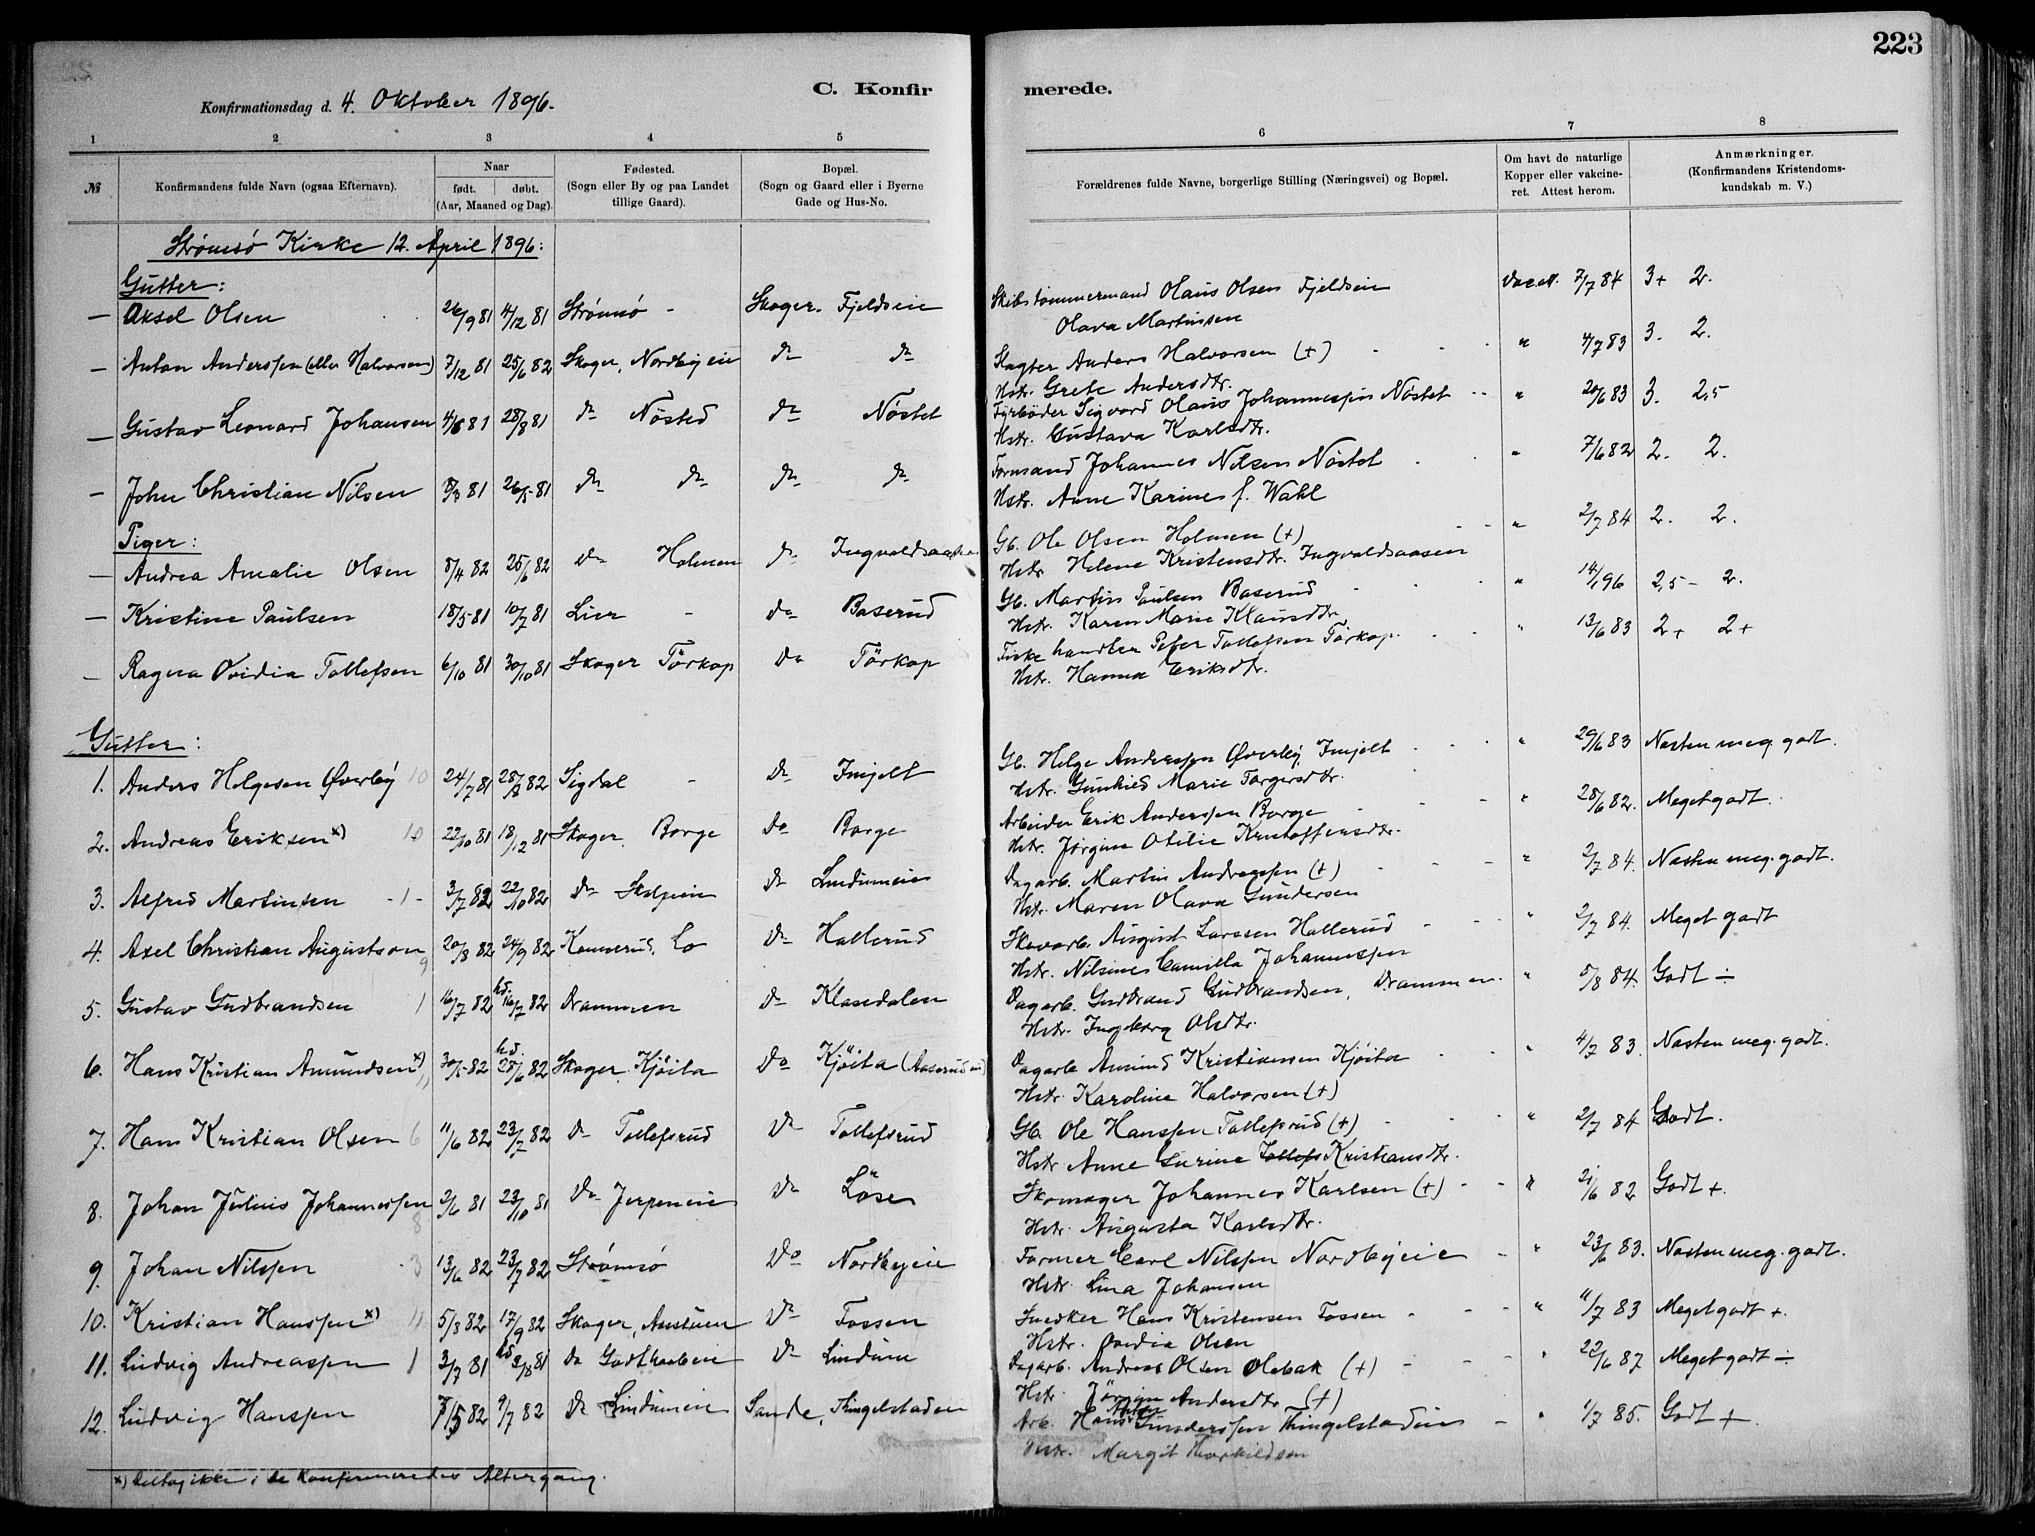 223
C. Konfirmerede.
Konfirmationsdag d. 4. Oktober 1896.
1 2 3 4 5 6 7 8
№ Konfirmandens fulde Navn (ogsaa Efternavn). Naar født. døbt. (Aar, Maaned og Dag). Fødested. (Sogn eller By og paa Landet tillige Gaard). Bopæl. (Sogn og Gaard eller i Byerne Gade og Hus-No. Forældrenes fulde Navne, borgerlige Stilling (Næringsvei) og Bopæl. Om havt de naturlige Kopper eller vakcineret. Attest herom. Anmærkninger. (Konfirmandens Kristendomskundskab m. V.)
Strømsø Kirke 12. April 1896:
Gutter:
— Aksel Olsen 26/9 81 4/12 81 Strømsø - Skoger. Fjeldseie Skibstømmermand Olaus Olsen Fjeldseie 7/7 84 3+ 2.
Olava Martinsen
— Anton Anderssen (eller Halvorsen) 7/12 81 25/6 82 Skoger, Nordbyeie do do Slagter Anders Halvorsen (+) " 4/7 83 3. 2.
Hstr. Grete Andersdtr.
— Gustav Leonard Johansen 4/6 81 28/8 81 do Nøsted do Nøstet Fyrbøder Sigvard Olaus Johannessen Nøstet " 20/6 83 3. 2,5
Hstr. Gustava Karlsdtr.
— John Christian Nilsen 8/3 81 26/5 81 do do do do Formand Johannes Nilsen Nøstet " 7/6 82 2. 2.
Hstr. Anne Karine f. Wahl
Piger:
— Andrea Amalie Olsen 8/4 82 25/6 82 do Holmen do Ingvaldsaasen Gb. Ole Olsen Holmen (+) " 2/7 84 2. 2.
Hstr. Helene Kristensdtr. Ingvaldsaasen
— Kristine Paulsen 18/5 81 10/7 81 Lier - do Baserud Gb. Martin Paulsen Baserud " 14/1 96 2,5 - 2.
Hstr. Karen Marie Klausdtr
— Ragna Ovidia Tollefsen 6/10 81 30/10 81 Skoger Tørkop do Tørkop Fiskehandler Peter Tollefsen Tørkop. " 13/6 83 2+ 2+
Hstr. Hanna Eriksdtr.
Gutter:
1. Anders Helgesen Øverby 10 24/7 81 28/8 82 Sigdal - do Imjelt Gb. Helge Anderssen Øverby, Imjelt " 29/6 83 Næsten meg. godt.
Hstr. Gunhild Marie Torgersdtr.
2. Andreas Eriksen x) 10 22/10 81 18/12 81 Skoger Borge do Borge Arbeider Erik Anderssen Borge " 28/6 82. Meget godt.
Hstr. Jørgine Otilie Kristoffersdtr.
3. Alfred Martinsen - 1 - 3/7 82 22/10 82 do do Lindumeie Dagarb. Martin Andreassen (+) " 2/7 84. Næsten meg. godt.
Hstr. Maren Olava Gundersen
4. Axel Christian Augustson 9 20/8 82 24/9 82 Konnerud, Lo do Hallerud Skovarb. August Larssen Hallerud " 2/7 84. Meget godt
Hstr. Nilsine Camilla Johannessen
5. Gustav Gudbrandsen 1 16/7 82 hd. 16/7 82 Drammen do Klosedalen Dagarb. Gudbrand Gudbrandsen, Drammen. " 5/8 84. Godt ÷
Hstr. Ingborg Olsdtr.
6. Hans Kristian Amundsen x) 11 30/5 82 hd. 25/6 82 Skoger Kjøita do Kjøita (Aaserud) Dagarb Amund Kristiansen Kjøita " 4/7 83. Næsten meg. godt.
Hstr. Karoline Halvorsen (+)
7. Hans Kristian Olsen 6 11/6 82 23/7 82 do Tollefsrud do Tollefsrud Gb. Ole Hanssen Tollefsrud (+) " 2/7 84 Godt.
Hstr Anne Gurine Tollefs Kristiansdtr.
8. Johan Julius Johannessen 8 2/6 81 23/10 81 do Jerpeneie do Løse Skomager Johannes Karlsen (+) " 21/6 82 Godt +.
Hstr. Augusta Karlsdtr.
9. Johan Nilssen 3 13/6 82 23/7 82 Strømsø do Nordbyeie Former Carl Nilssen Nordbyeie " 23/6 83. Næsten meg. godt.
Hstr. Lina Johansen
10. Kristian Hanssen x) 11 5/8 82 17/9 82 Skoger, do Fossen Snedker Hans Kristensen Fossen " 11/7 83 Meget godt +.
Hstr. Ovidia Olsen
11. Ludvig Andreassen 1 3/7 81 hd 2/8 81 do Godthaabeie do Lindum Dagarb. Andreas Olsen Olebak (+) " 22/6 87 Meget godt ÷
Hstr. Jørgine Andersdtr (+)
12. Ludvig Hanssen 7/5 82 9/7 82 do Lindumeie Sande, Thingelstadeie Arb. Hans Anton Gunderssen Thingelstadeie " 1/7 85. Godt +.
Hstr. Margit Thorkildsen
x) Deltog ikke i de Konfirmeredes Altergang.